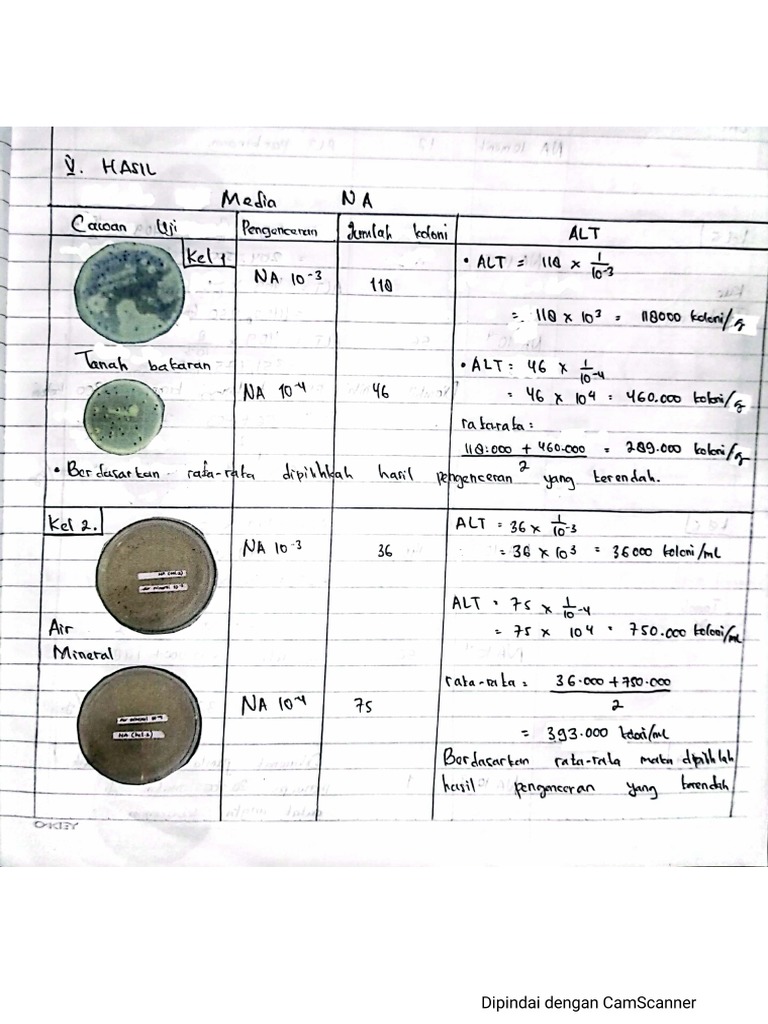 V. HASIL
Media NA
Cawan Uji Pengenceran Jumlah koloni ALT
Kel 1
NA 10-3 118
• ALT = 118 × 1/10-3
= 118 × 10³ = 118000 koloni/g
Tanah bakaran
NA 10-4 46
• ALT = 46 × 1/10-4
= 46 × 10⁴ = 460.000 koloni/g
rata-rata:
118.000 + 460.000 / 2 = 289.000 koloni/g
• Berdasarkan rata-rata dipilihkah hasil pengenceran yang terendah.
Kel 2.
NA 10-3 36
ALT = 36 × 1/10-3
= 36 × 10³ = 36000 koloni/ml
Air
Mineral
ALT = 75 × 1/10-4
= 75 × 10⁴ = 750.000 koloni/ml
NA 10-4 75
rata-rata = 36.000 + 750.000 / 2
= 393.000 koloni/ml
Berdasarkan rata-rata maka dipilihlah
hasil pengenceran yang terendah
Dipindai dengan CamScanner